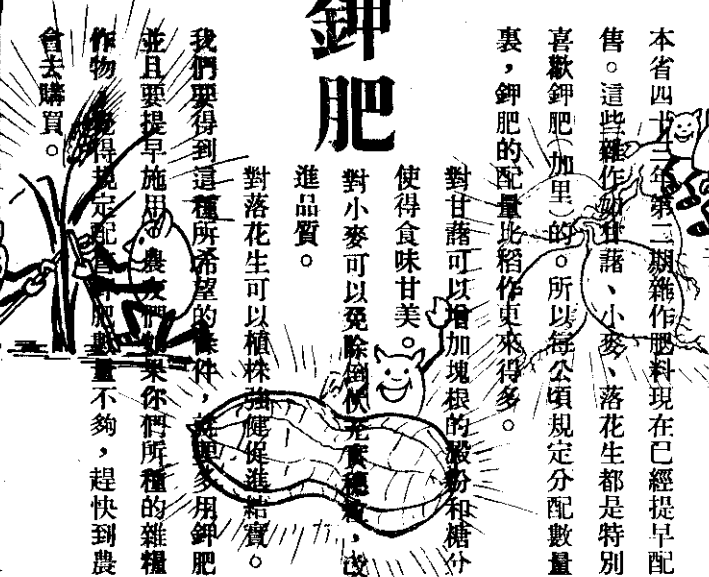 鉀肥
本省四十三年第二期雜作肥料現在已經提早配
售。這些雜作如甘藷、小麥、落花生都是特別
喜歡鉀肥(加里)的。所以每公頃規定分配數量
裏,鉀肥的配量比稻作更來得多。
對甘藷可以增加塊根的澱粉和糖分
使得食味甘美。
對小麥可以免除倒伏充實穗粒,改
進品質。
對落花生可以植株強健促進結實。
我們要得到這種所希望的條件,就要多用鉀肥
並且要提早施用。農友們如果你們所種的雜糧
作物,覺得規定配售鉀肥數量不夠,趕快到農
會去購買。